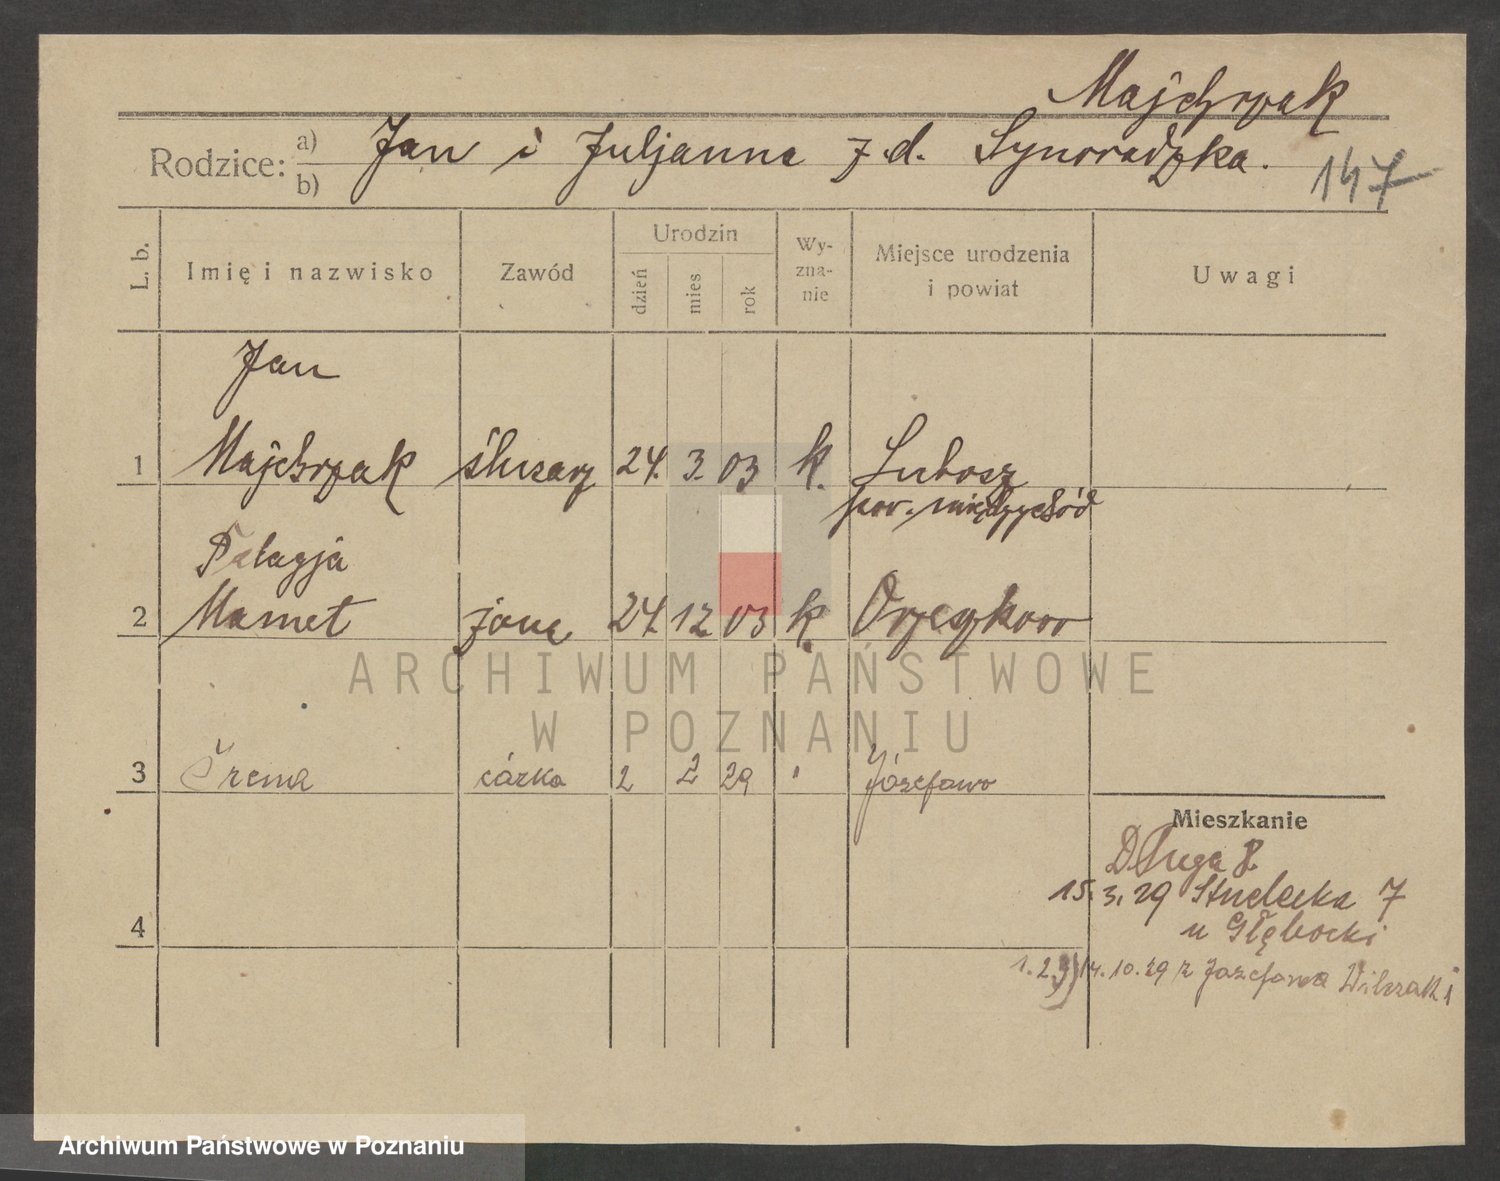 Majchrzak
Rodzice: a) b) Jan i Juljanna z d. Synoradzka.
147
L. b. Imię i nazwisko Zawód Urodzin dzień mies rok Wy-zna-nie Miejsce urodzenia i powiat Uwagi
Jan
1 Majchrzak ślusarz 24. 3. 03 k. Lubosz
pow. międzychód
Pelagja
2 Mamet żona 24. 12 03 k.
3 Irena córka 2 2 29 " Józefowo
Mieszkanie
Długa 8.
15.3.29 Studecka 7
4
u Głębocki
1.2.3) 14.10.29 z Józefowa Wilczaki
ARCHIWUM PAŃSTWOWE
W POZNANIU
Archiwum Państwowe w Poznaniu